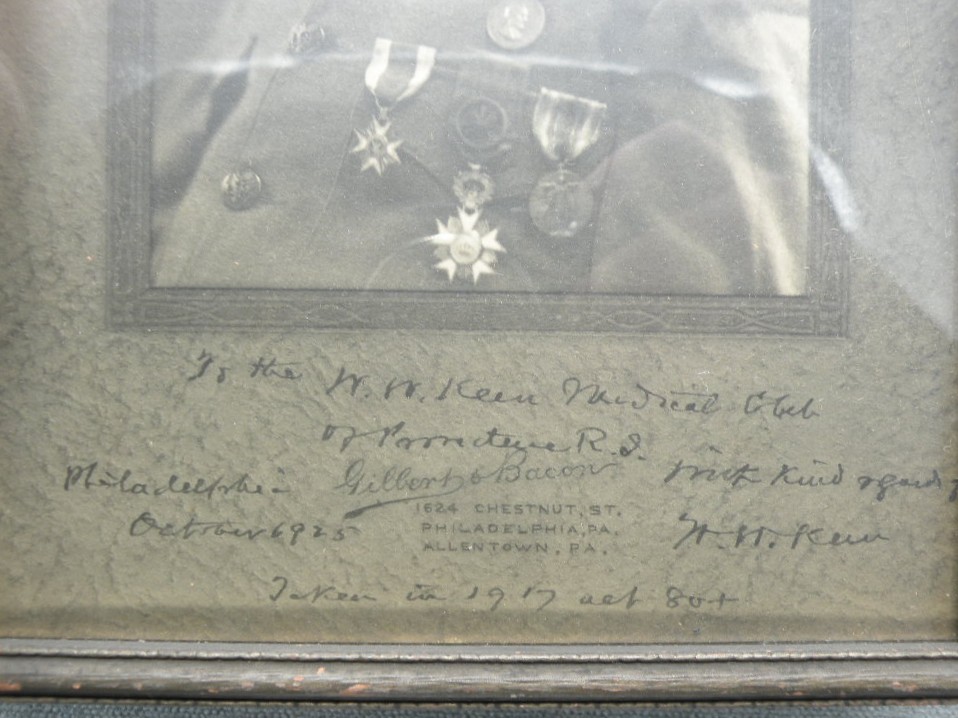 To the W. W. Keen Medical Club
of Providence R. I.
Philadelphia Gilbert & Bacon with kind regards of
October 1925 1624 CHESTNUT, ST. W. W. Keen
PHILADELPHIA, PA.
ALLENTOWN, PA.
Taken in 1917 aet 80+